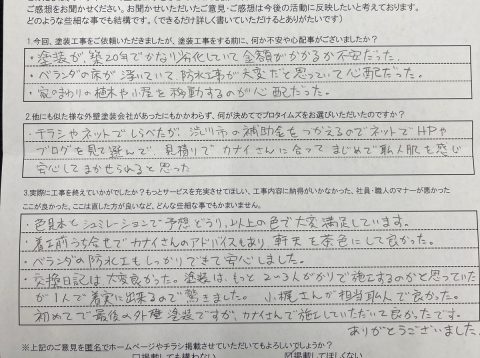 ご感想をお聞かせください。お聞かせいただいたご意見・ご感想は今後の活動に反映したいと考えております。
どのような些細な事でも結構です。（できるだけ詳しく書いていただけるとありがたいです）
1.今回、塗装工事をご依頼いただきましたが、塗装工事をする前に、何か不安や心配事がございましたか？
・塗装が、築20年でかなり劣化していて金額がかかるか不安だった。
・ベランダの床が浮いていて防水工事が大変だと思っていて心配だった。
・家のまわりの植木や小屋を移動するのが心配だった。
2.他にも似た様な外壁塗装会社があったにもかかわらず、何が決めてでプロタイムズをお選びいただいたのですか？
・チラシやネットでしらべたが、渋川市の補助金をつかえるのでネットでHPや
ブログを見て選んで、見積りでカナイさんに会って まじめで職人肌を感じ
安心してまかせられると思った
3.実際に工事を終えていかがでしたか？もっとサービスを充実させてほしい、工事内容に納得がいかなかった、社員・職人のマナーが悪かった
ここが良かった、ここは直した方が良いなど、どんな些細な事でもかまいません。
・色見本とシュミレーションで予想どうり、以上の色で大変満足しています。
・着工前うち合せでカナイさんのアドバイスもあり 軒天を茶色にして良かった。
・ベランダの防水工もしっかりできて安心しました。
・交換日記は大変良かった。塗装は、もっと2〜3人がかりで施工するのかと思っていた
が1人で着実に出来るので驚きました。 小梶さんが担当職人で良かった。
初めてで最後の外壁塗装ですが、カナイさんで施工していただいて良かったです。
ありがとうございました。
※上記のご意見を匿名でホームページやチラシ掲載させていただいてもよろしいでしょうか？
□掲載しても構わない ☑掲載してほしくない